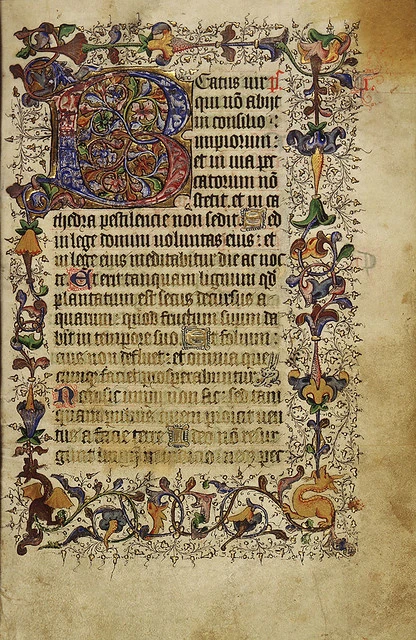 Beatus uir ps
qui nō abijt
in consilio
impiorum :
et in uia pec
catorum nō
stetit. et in ca
thedra pestilencie non sedit. Sed
in lege domini uoluntas eius : et
in lege eius meditabitur die ac noc
te. Et erit tanquam lignum qd
plantatum est secus decursus a
quarum : quod fructum suum da
bit in tempore suo. Et folium
eius non defluet : et omnia que
cumque faciet prosperabuntur.
Non sic impij non sic : sed tam
quam puluis quem proicit uen
tus a facie terre. Ideo nō resur
gunt impij in iudicio neqz pec